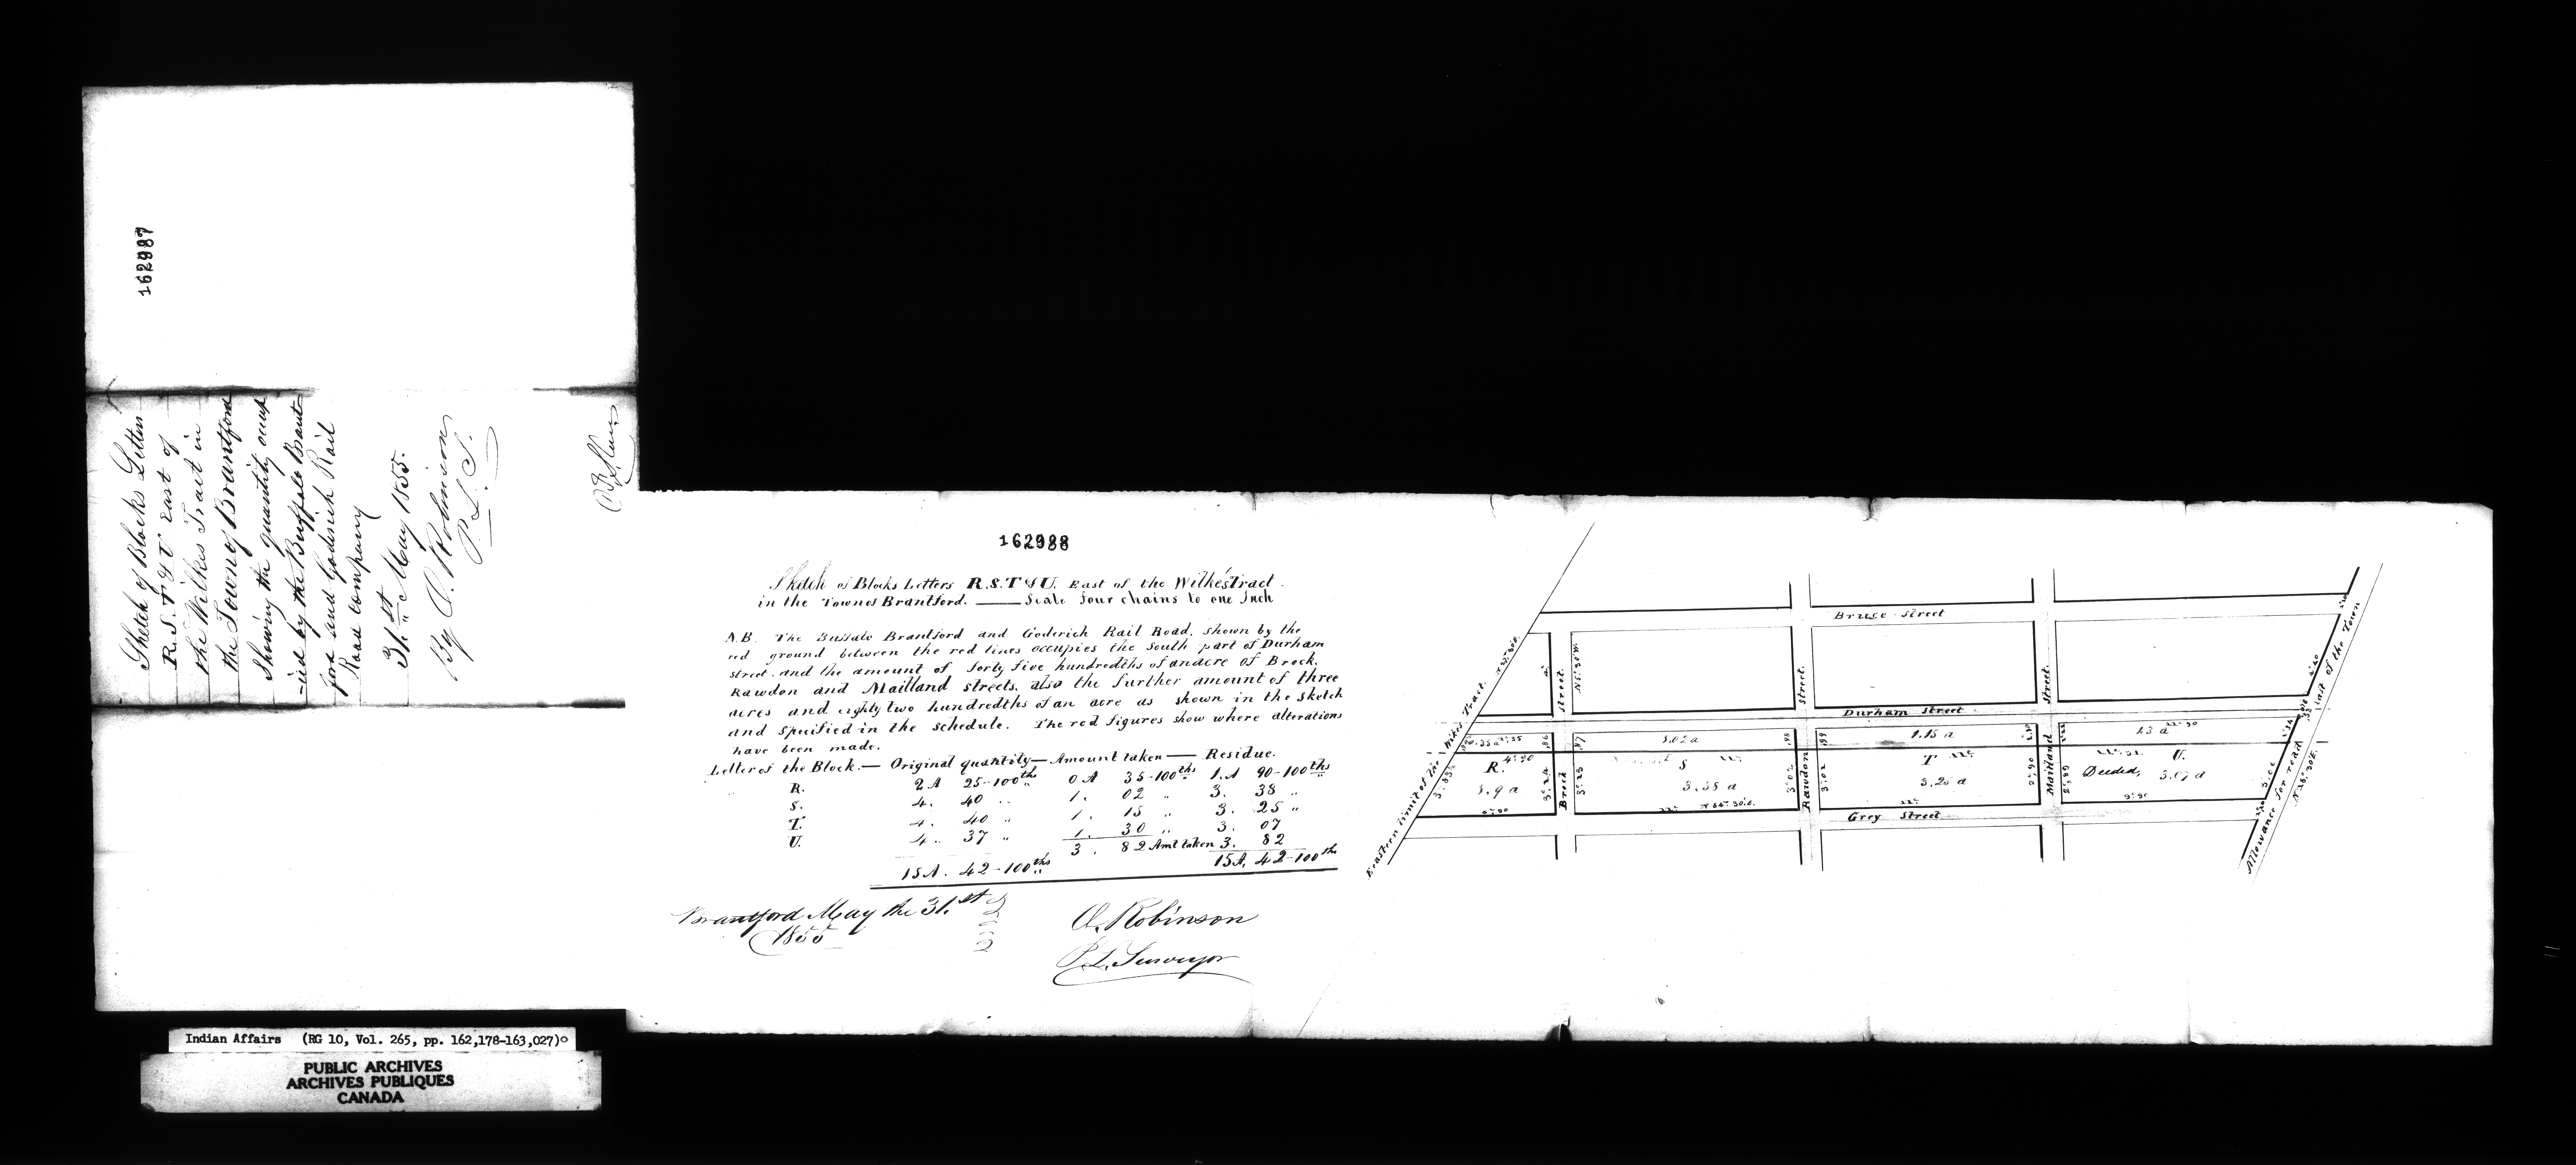 162987
Sketch of Blocks Letters
R. S. T & U East of
the Wilkes Tract in
the Town of Brantford
Showing the quantity occup
-ied by the Buffalo Brant-
ford and Goderich Rail
Road Company
31st May 1855.
By O. Robinson
P. L. S.
162988
Sketch of Blocks Letters R.S.T & U. East of the Wilke's Tract
in the Town of Brantford. — Scale four chains to one Inch
N.B. The Buffalo Brantford and Goderich Rail Road, shown by the
red ground between the red lines occupies the South part of Durham
street. and the amount of forty five hundredths of an acre of Brock.
Rawdon and Maitland streets. also the further amount of three
acres and eighty two hundredths of an acre as shown in the sketch
and specified in the schedule. The red figures show where alterations
have been made.
Letter of the Block. — Original quantity — Amount taken — Residue.
R. 2 A 25-100ths 0 A 35-100ths 1. A 90-100ths
S. 4. 40 " 1. 02 " 3. 38 "
T. 4. 40 " 1. 15 " 3. 25 "
U. 4. 37 " 1. 30 " 3. 07
3. 82 Amt taken 3. 82
15 A. 42-100ths 15 A. 42-100ths
Brantford May the 31.st
1855
O. Robinson
P. L. Surveyor
Bruce Street
Durham Street
Grey Street
Brock Street.
Rawdon Street.
Maitland Street.
Eastern limit of the Wilkes Tract.
Allowance for road East of the Town
1.02 a
1.15 a
1.3 a
R.
S
T
U.
Deeded,
1.9 a
3.38 a
3.25 a
3.07 a
Indian Affairs (RG 10, Vol. 265, pp. 162,178-163,027)
PUBLIC ARCHIVES
ARCHIVES PUBLIQUES
CANADA